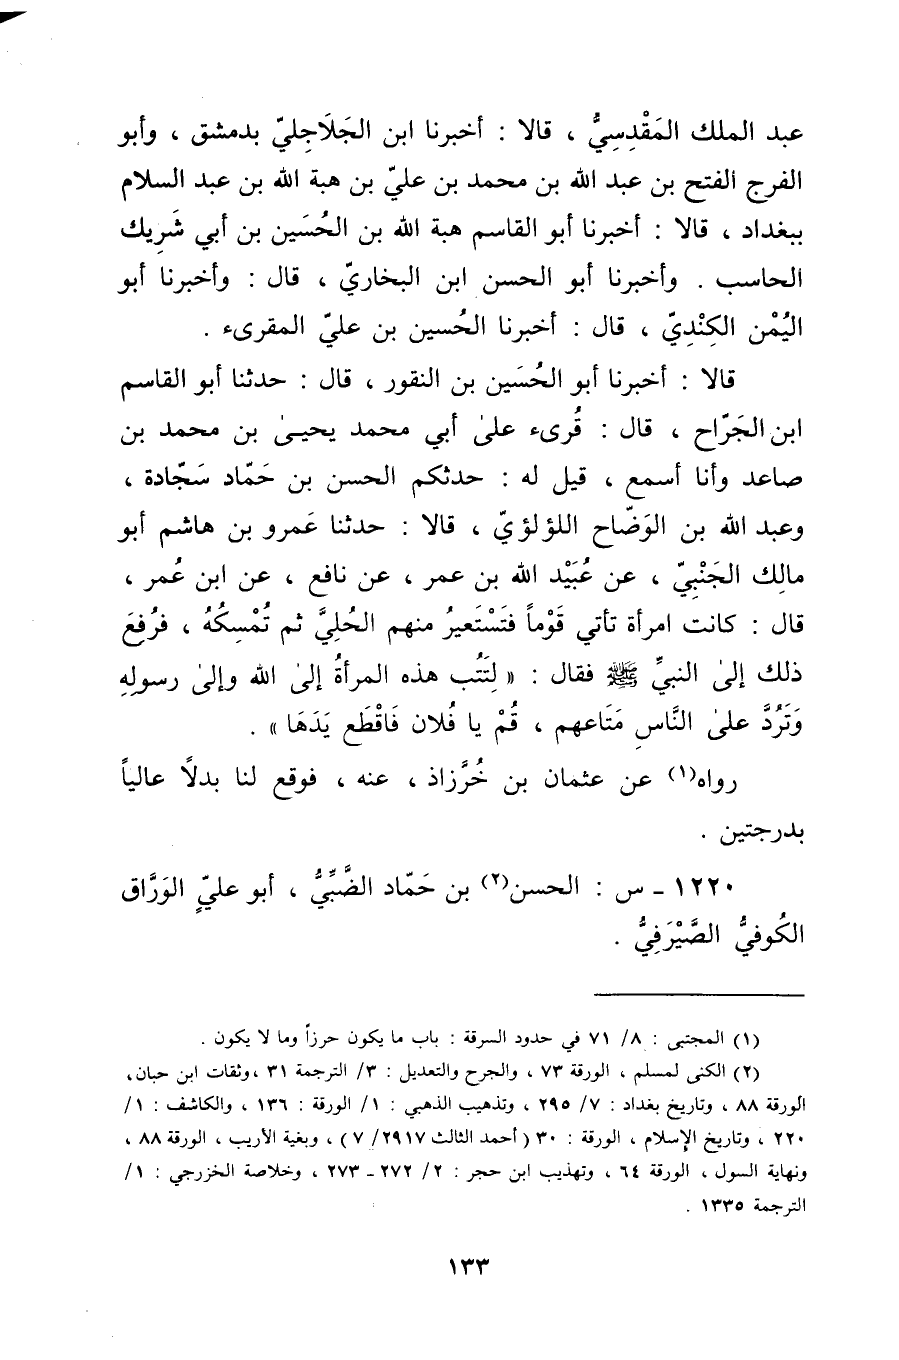 عبد الملك المَقْدِسِيُّ ، قالا : أخبرنا ابن الجَلَاجِليّ بدمشق ، وأبو
الفرج الفتح بن عبد الله بن محمد بن عليّ بن هبة الله بن عبد السلام
ببغداد ، قالا : أخبرنا أبو القاسم هبة الله بن الحُسَين بن أبي شَرِيك
الحاسب . وأخبرنا أبو الحسن ابن البخاريّ ، قال : وأخبرنا أبو
اليُمْن الكِنْدِيّ ، قال : أخبرنا الحُسين بن عليّ المقرىء .
قالا : أخبرنا أبو الحُسَين بن النقور ، قال : حدثنا أبو القاسم
ابن الجَرّاح ، قال : قُرىء علىٰ أبي محمد يحيىٰ بن محمد بن
صاعد وأنا أسمع ، قيل له : حدثكم الحسن بن حَمّاد سَجّادة ،
وعبد الله بن الوَضّاح اللؤلؤيّ ، قالا : حدثنا عَمرو بن هاشم أبو
مالِك الجَنْبِيّ ، عن عُبَيْد الله بن عمر ، عن نافع ، عن ابن عُمر ،
قال : كانت امرأة تأتي قَوْماً فتَسْتَعيرُ منهم الحُلِيَّ ثم تُمْسِكُهُ ، فرُفِعَ
ذلك إلىٰ النبيِّ ﷺ فقال : « لِتَتُب هذه المرأةُ إلىٰ الله وإلىٰ رسولِهِ
وَتَرُدَّ علىٰ النَّاسِ مَتَاعهم ، قُمْ يا فُلان فَاقْطَع يَدَهَا » .
رواه(١) عن عثمان بن خُرَّزاذ ، عنه ، فوقع لنا بدلاً عالياً
بدرجتين .
١٢٢٠ - س : الحسن(٢) بن حَمّاد الضَّبِّيُّ ، أبو عليّ الوَرَّاق
الكُوفيُّ الصَّيْرَفِيُّ .
(١) المجتبى : ٨/ ٧١ في حدود السرقة : باب ما يكون حرزاً وما لا يكون .
(٢) الكنى لمسلم ، الورقة ٧٣ ، والجرح والتعديل : ٣/ الترجمة ٣١ ، وثقات ابن حبان،
الورقة ٨٨ ، وتاريخ بغداد : ٧/ ٢٩٥ ، وتذهيب الذهبي : ١/ الورقة : ١٣٦ ، والكاشف : ١/
٢٢٠ ، وتاريخ الإسلام ، الورقة : ٣٠ ( أحمد الثالث ٢٩١٧/ ٧ ) ، وبغية الأريب ، الورقة ٨٨ ،
ونهاية السول ، الورقة ٦٤ ، وتهذيب ابن حجر : ٢/ ٢٧٢ - ٢٧٣ ، وخلاصة الخزرجي : ١/
الترجمة ١٣٣٥ .
١٣٣